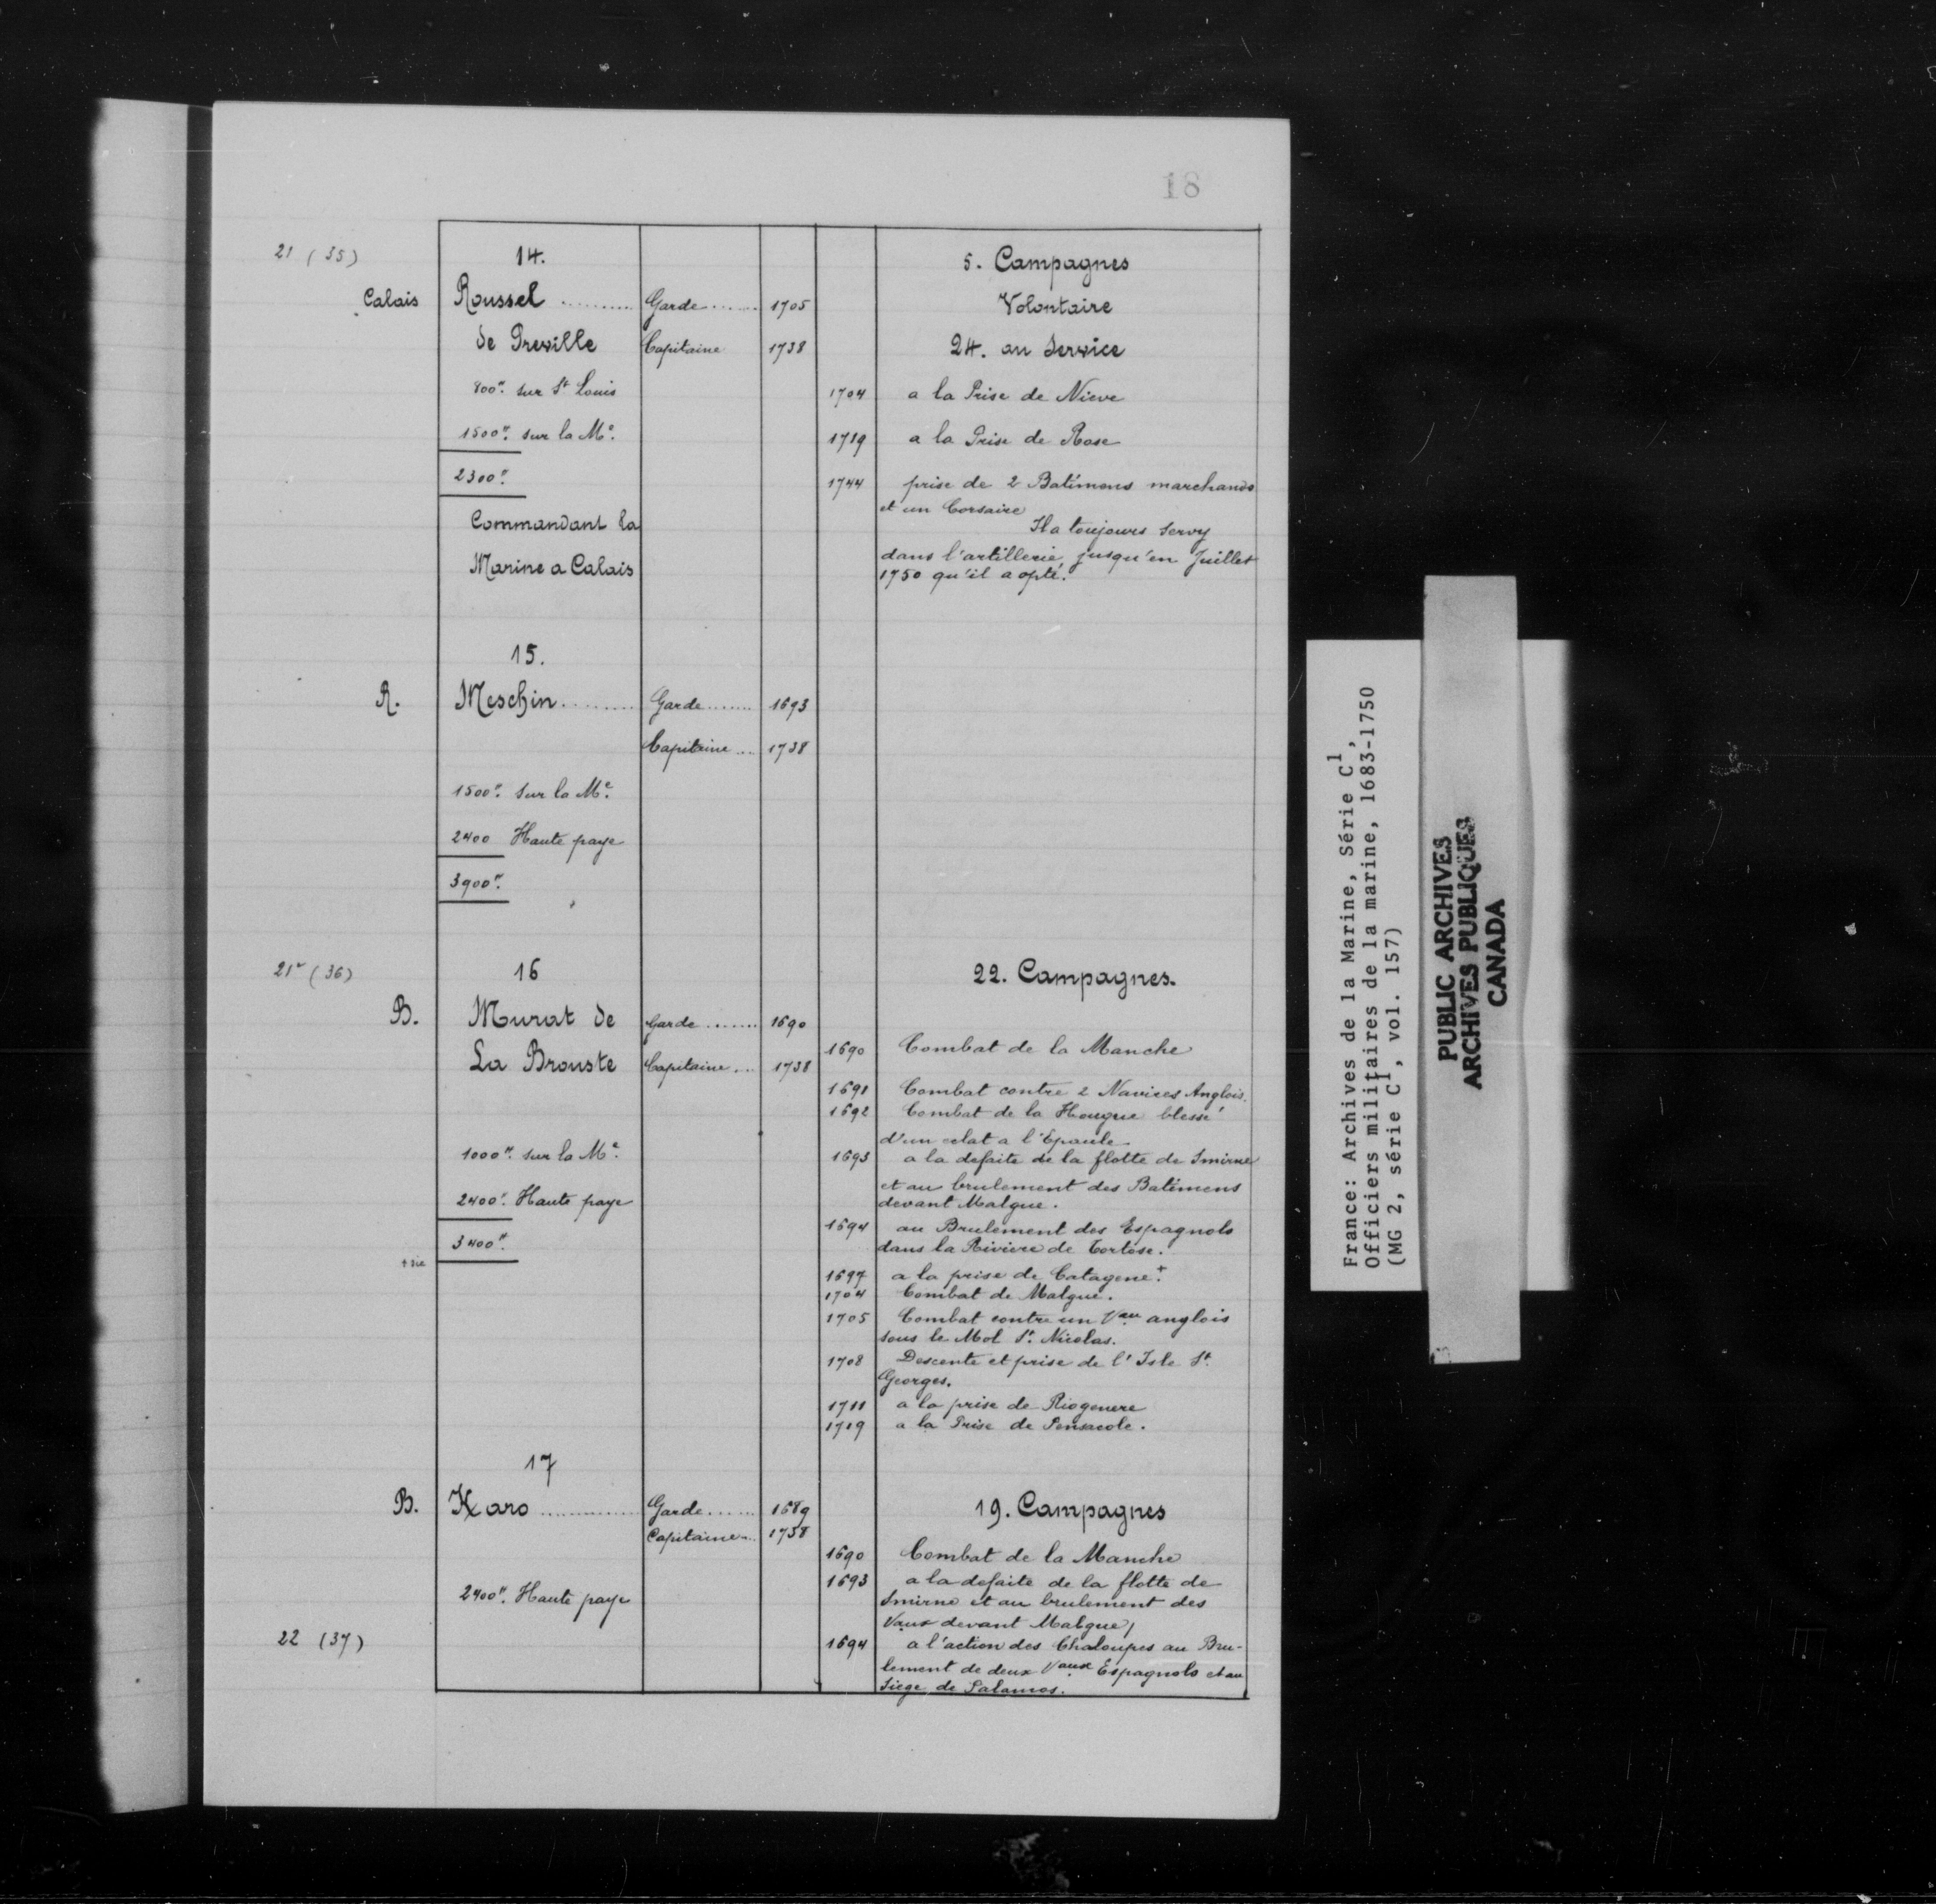 18
21 (35)
14.
5. Campagnes
Calais Roussel .......... Garde ....... 1705 Volontaire
de Preville Capitaine 1738 24. au Service
800" sur St Louis 1704 a la Prise de Nieve
1500" sur la Me. 1719 a la Prise de Rose
2300" 1744 prise de 2 Batimens marchands
et un Corsaire
Commandant la Il a toujours servy
Marine a Calais dans l'artillerie jusqu'en Juillet
1750 qu'il a opté.
15.
A. Meschin ......... Garde ....... 1693
Capitaine ... 1738
1500" sur la Me.
2400 Haute paye
3900"
21v (36) 16 22. Campagnes.
B. Murat de Garde ........ 1690
1690 Combat de la Manche
La Brouste Capitaine ... 1738
1691 Combat contre 2 Navires Anglois.
1692 Combat de la Hougue blessé
d'un eclat a l'Epaule
1000" sur la Me. 1693 a la defaite de la flotte de Smirne
et au brulement des Batimens
2400" Haute paye devant Malgue.
1694 au Brulement des Espagnols
3400" dans la Riviere de Tortose.
+ sic
1697 a la prise de Catagene +.
1704 Combat de Malgue.
1705 Combat contre un Vau anglois
sous le Mol St. Nicolas.
1708 Descente et prise de l'Isle St.
Georges.
1711 a la prise de Riogenere
1719 a la Prise de Pensacole.
17
B. Karo ............. Garde ...... 1689 19. Campagnes
Capitaine ... 1738
1690 Combat de la Manche
1693 a la defaite de la flotte de
2400" Haute paye Smirne et au brulement des
Vaux devant Malgue,
22 (37) 1694 a l'action des Chaloupes au Bru-
lement de deux Vaux Espagnols et au
Siege de Palamos.
France: Archives de la Marine, Série C1,
Officiers militaires de la marine, 1683-1750
(MG 2, série C1, vol. 157)
PUBLIC ARCHIVES
ARCHIVES PUBLIQUES
CANADA